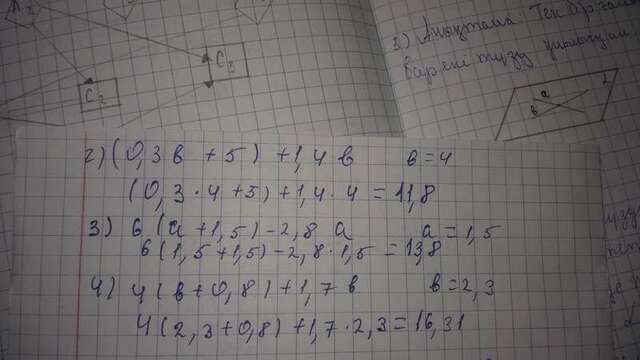 C₂
C₃
3) Анықтама. Тек бір ғана
a
b
2)(0,3в + 5) + 1,4 в   в=4
(0,3·4+5)+1,4·4 = 11,8
3) 6 (a+1,5)-2,8 a   a=1,5
6(1,5+1,5)-2,8·1,5 = 13,8
4) 4(в+0,8)+1,7 в   в=2,3
4(2,3+0,8)+1,7·2,3=16,31